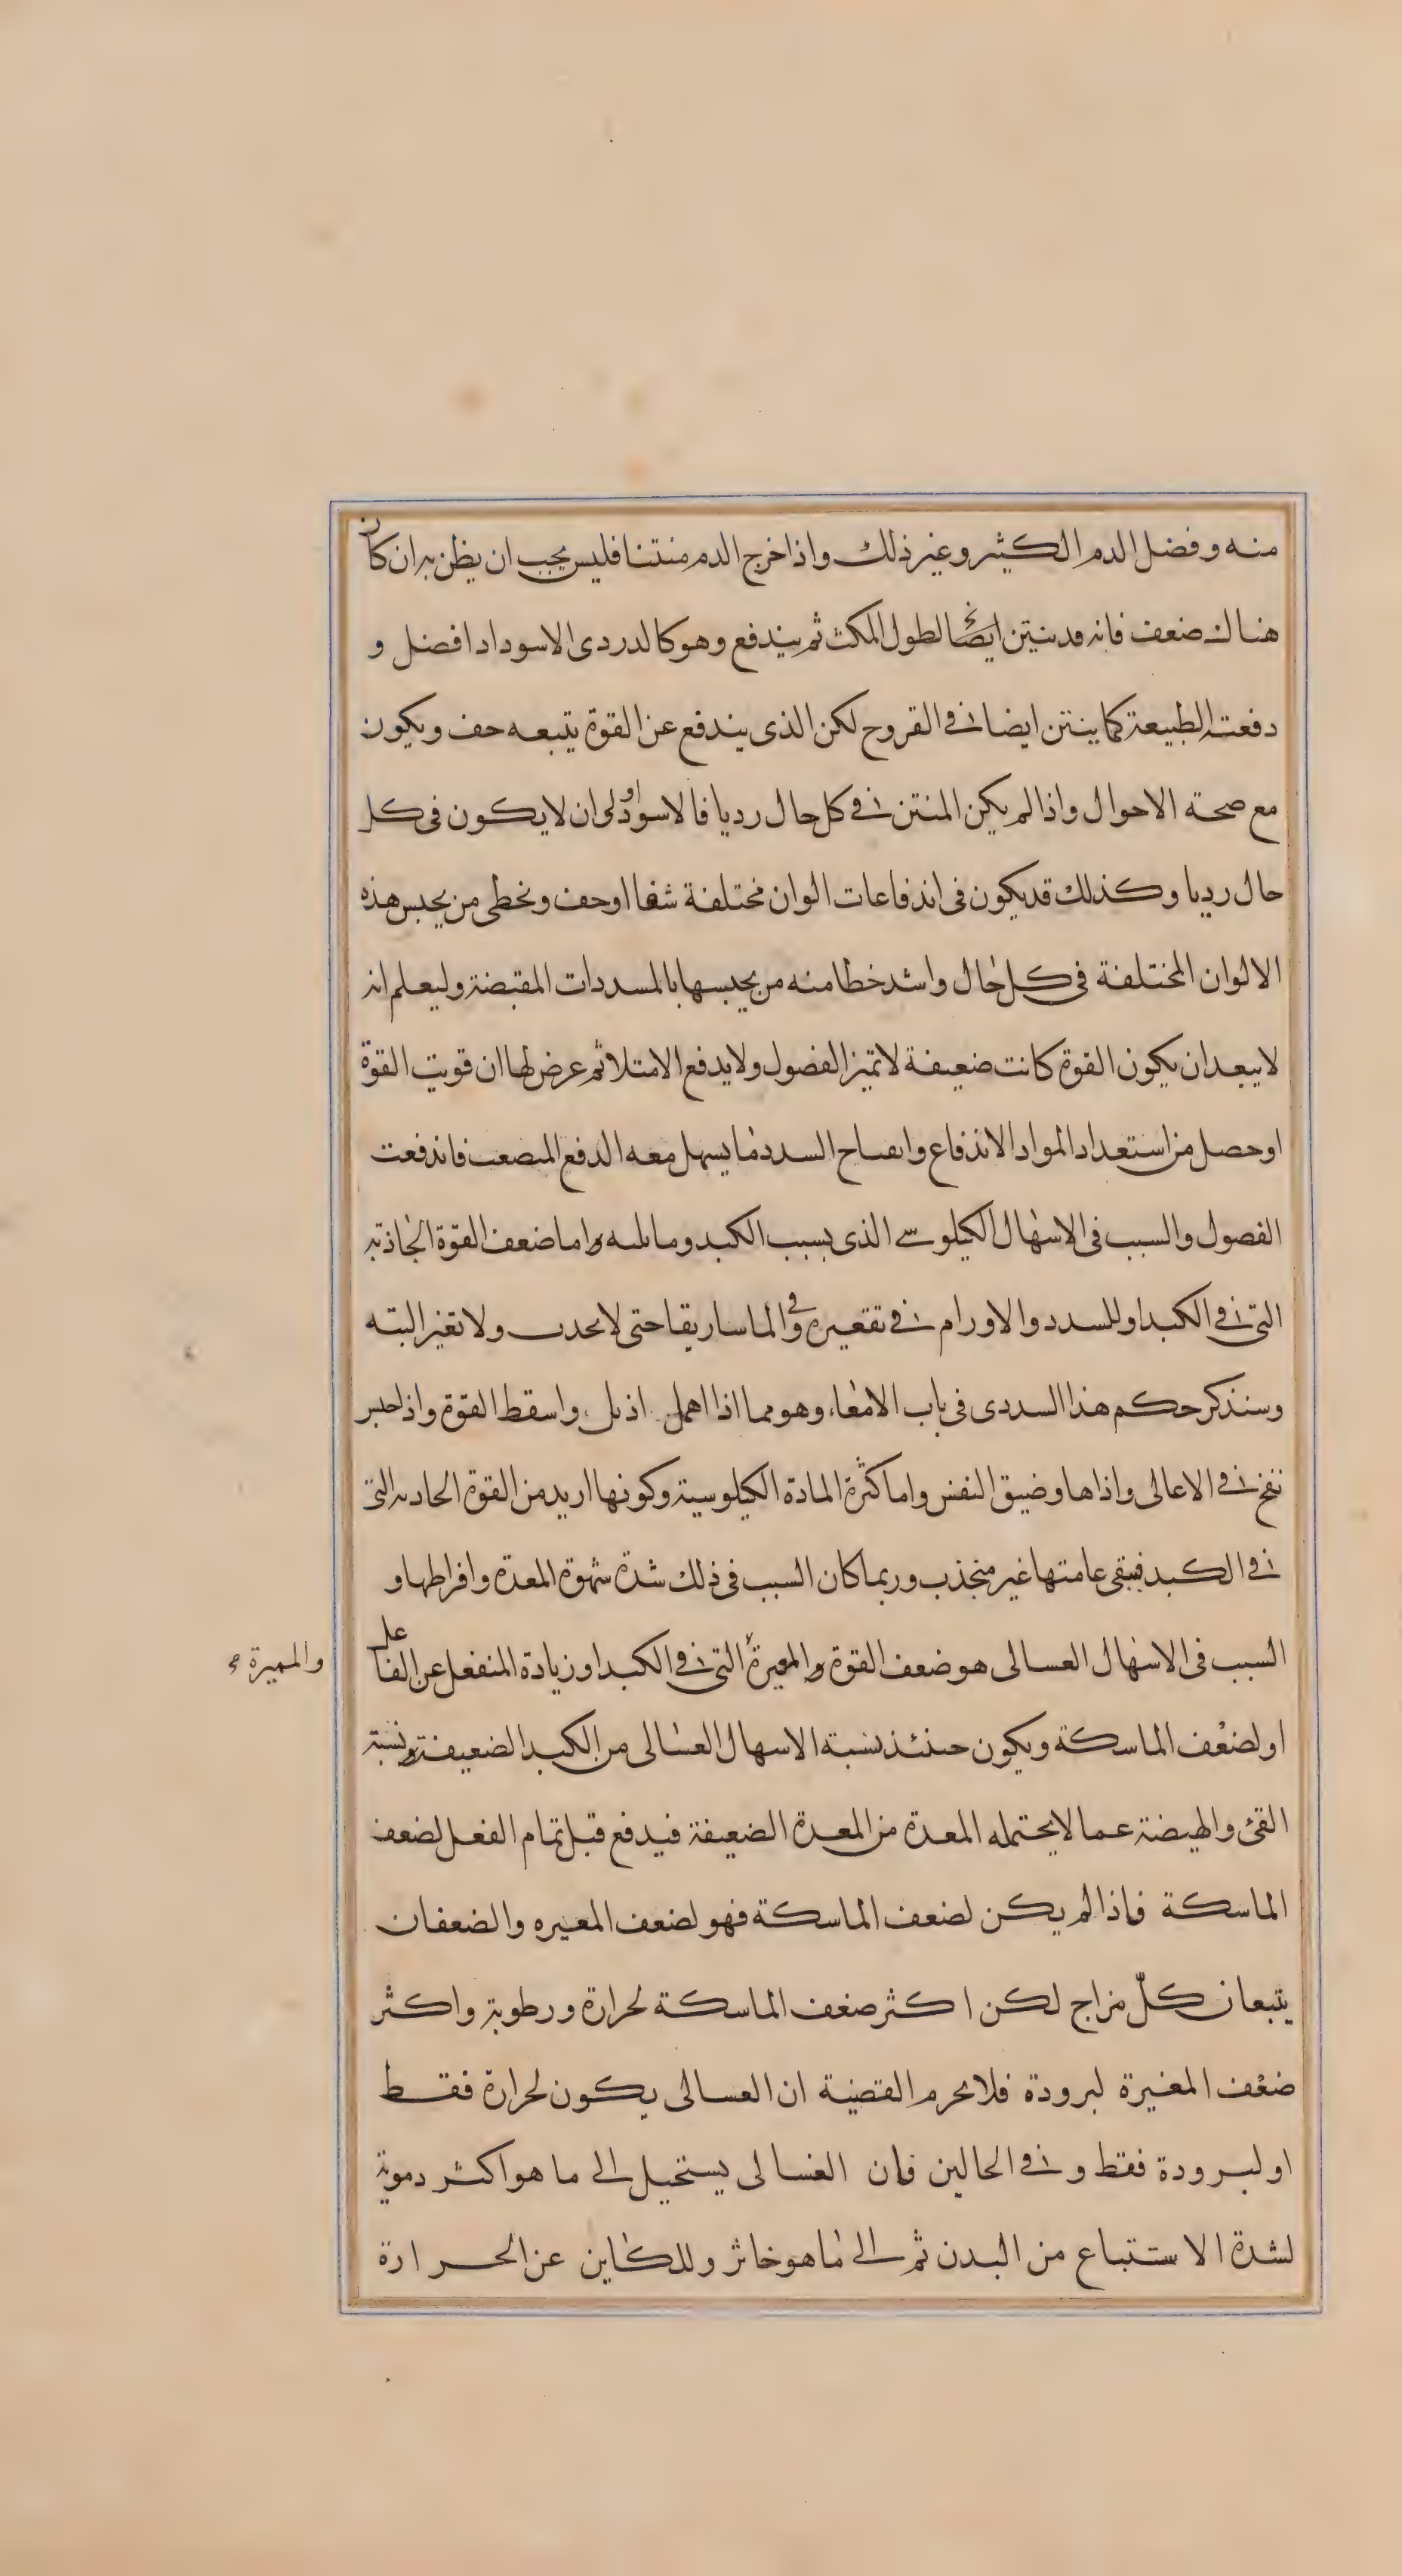 منه وفضل الدم الكثير وغير ذلك واذا خرج الدم منتنا فليس يجب ان يظن به ان كان
هناك ضعف فانه قد ينتن ايضا لطول المكث ثم يندفع وهو كالدردى الاسود اد افضل و
دفعته الطبيعة كما ينتن ايضا فى القروح لكن الذى يندفع عن القوة يتبعه خف ويكون
مع صحته الاحوال واذا لم يكن المنتن فى كل حال رديا فالاسود اولى ان لا يكون فى كل
حال رديا وكذلك قد يكون فى اندفاعات الوان مختلفة شفا اوخف ونخطى من يحبس هذه
الالوان المختلفة فى كل حال واشد خطا منه من يحبسها بالمسددات المقبضة وليعلم انه
لا يبعد ان يكون القوة كانت ضعيفة لا تميز الفضول ولا يدفع الامتلا ثم عرض لها ان قويت القوة
او حصل من استعداد المواد الاندفاع وانفتاح السدد ما يسهل معه الدفع المصعب فاندفعت
الفصول والسبب فى الاسهال الكيلوسى الذى بسبب الكبد وما يليه واما ضعف القوة الجاذبة
التى فى الكبد او للسدد والاورام فى تقعيره وفى الماساريقا حتى لا تجذب ولا تغير البته
وسنذكر حكم هذا السددى فى باب الامعاء وهو مما اذا اهمل اذبل واسقط القوة واذا حبس
نفخ فى الاعالى واذاها وضيق النفس واما كثرة المادة الكيلوسية وكونها ازيد من القوة الجاذبة التى
فى الكبد فيبقى عامتها غير منجذب وربما كان السبب فى ذلك شدة شهوة المعدة وافراطها و
السبب فى الاسهال الغسالى هو ضعف القوة والمغيرة التى فى الكبد او زيادة المنفعل عن الفاعل
والمميزة صح
او لضعف الماسكة ويكون حينئذ نسبة الاسهال الغسالى من الكبد الضعيفة ونسبة
القئ والهيضة عما لا يحتمله المعدة من المعدة الضعيفة فيدفع قبل تمام الفعل لضعف
الماسكة فاذا لم يكن لضعف الماسكة فهو لضعف المغيره والضعفان
يتبعان كل مزاج لكن اكثر ضعف الماسكة لحرارة ورطوبة واكثر
ضعف المغيرة لبرودة فلا يحرم القضية ان الغسالى يكون لحرارة فقط
او لبرودة فقط وفى الحالين فان الغسالى يستحيل الى ما هو اكثر دموية
لشدة الاستتباع من البدن ثم الى ما هو خاثر وللكاين عن الحرارة